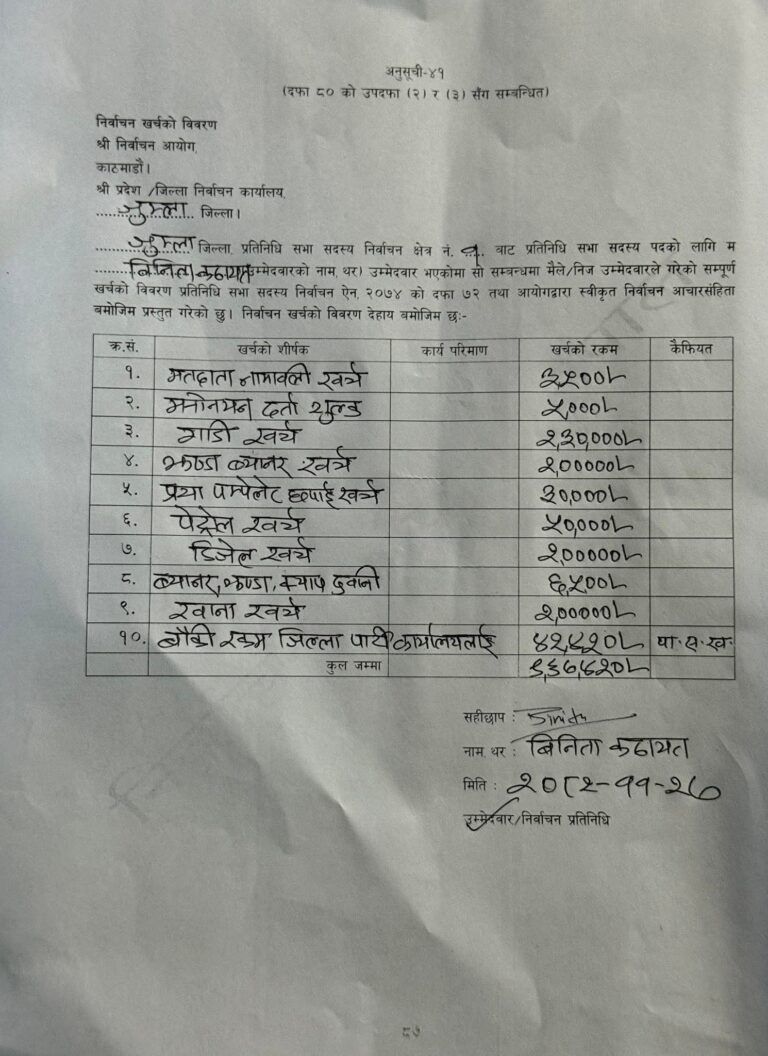 अनुसूची-४१
(दफा ८० को उपदफा (२) र (३) सँग सम्बन्धित)
निर्वाचन खर्चको विवरण
श्री निर्वाचन आयोग,
काठमाडौं।
श्री प्रदेश /जिल्ला निर्वाचन कार्यालय,
......जुम्ला...... जिल्ला।
......जुम्ला जिल्ला, प्रतिनिधि सभा सदस्य निर्वाचन क्षेत्र नं. १. बाट प्रतिनिधि सभा सदस्य पदको लागि म
......बिनिता कठायत (उम्मेदवारको नाम, थर) उम्मेदवार भएकोमा सो सम्बन्धमा मैले/निज उम्मेदवारले गरेको सम्पूर्ण
खर्चको विवरण प्रतिनिधि सभा सदस्य निर्वाचन ऐन, २०७४ को दफा ७२ तथा आयोगद्वारा स्वीकृत निर्वाचन आचारसंहिता
बमोजिम प्रस्तुत गरेको छु। निर्वाचन खर्चको विवरण देहाय बमोजिम छः-
क्र.सं. खर्चको शीर्षक कार्य परिमाण खर्चको रकम कैफियत
१. मतदाता नामावली खर्च ३५०००/-
२. मनोनयन दर्ता शुल्क ५०००/-
३. गाडी खर्च २,३०,०००/-
४. झण्डा ब्यानर खर्च २,०००००/-
५. पम्पलेट छपाई खर्च ३०,०००/-
६. पेट्रोल खर्च ५०,०००/-
७. डिजेल खर्च २,०००००/-
८. ब्यानर, झण्डा, क्याप ढुवानी ६,५००/-
९. खाना खर्च २,०००००/-
१०. बाँकी रकम जिल्ला पार्टी कार्यालयलाई ४२,४२०/- पा.स.ख.
कुल जम्मा
सहीछाप :
नाम, थर : बिनिता कठायत
मिति : २०८२-११-२७
उम्मेदवार/निर्वाचन प्रतिनिधि
८७